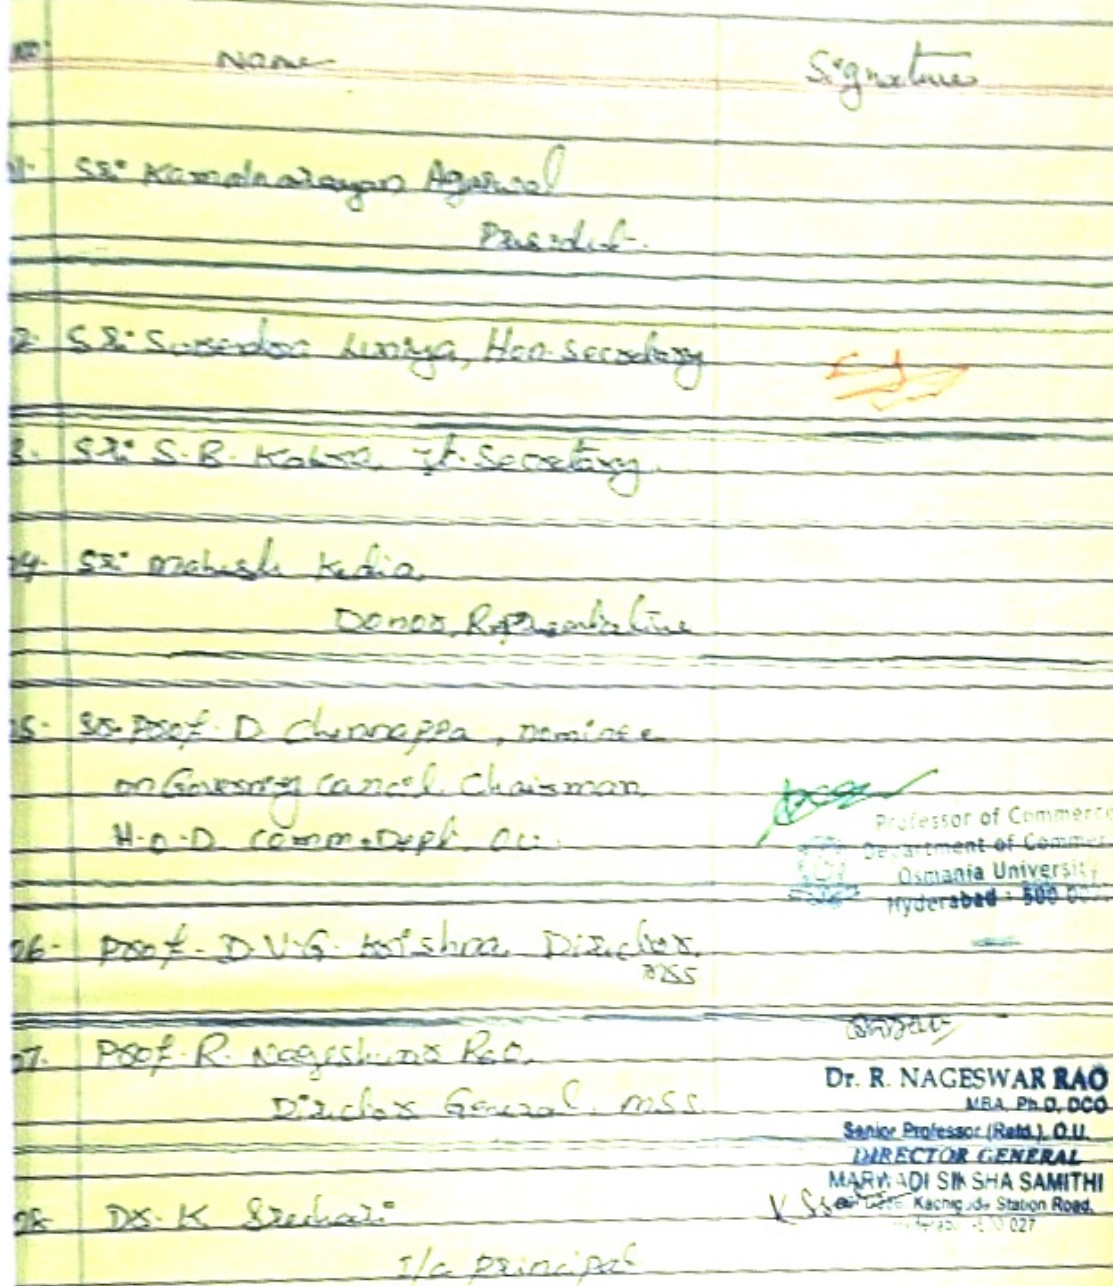 Name Signature
01. Sri Kamalnarayan Agarwal
President.
2. Sri Surendra Luniya, Hon. Secretary
3. Sri S.B. Kabra, Jt. Secretary.
04. Sri Mahesh Kedia,
Donor, Representative
05. Sr. Prof. D. Chennappa, nominee
on Governing Council. Chairman,
H.O.D. Comm. Dept. OU.
Professor of Commerce
Department of Commerce
Osmania University
Hyderabad - 500 007
06. Prof. D.V.G. Krishna, Director,
MSS
07. Prof. R. Nageshwar Rao,
Director General, MSS.
Dr. R. NAGESWAR RAO
MBA, Ph.D, DCO
Senior Professor (Retd.), O.U.
DIRECTOR GENERAL
MARWADI SIKSHA SAMITHI
Kachiguda Station Road,
08. Dr. K Srehari
I/c Principal